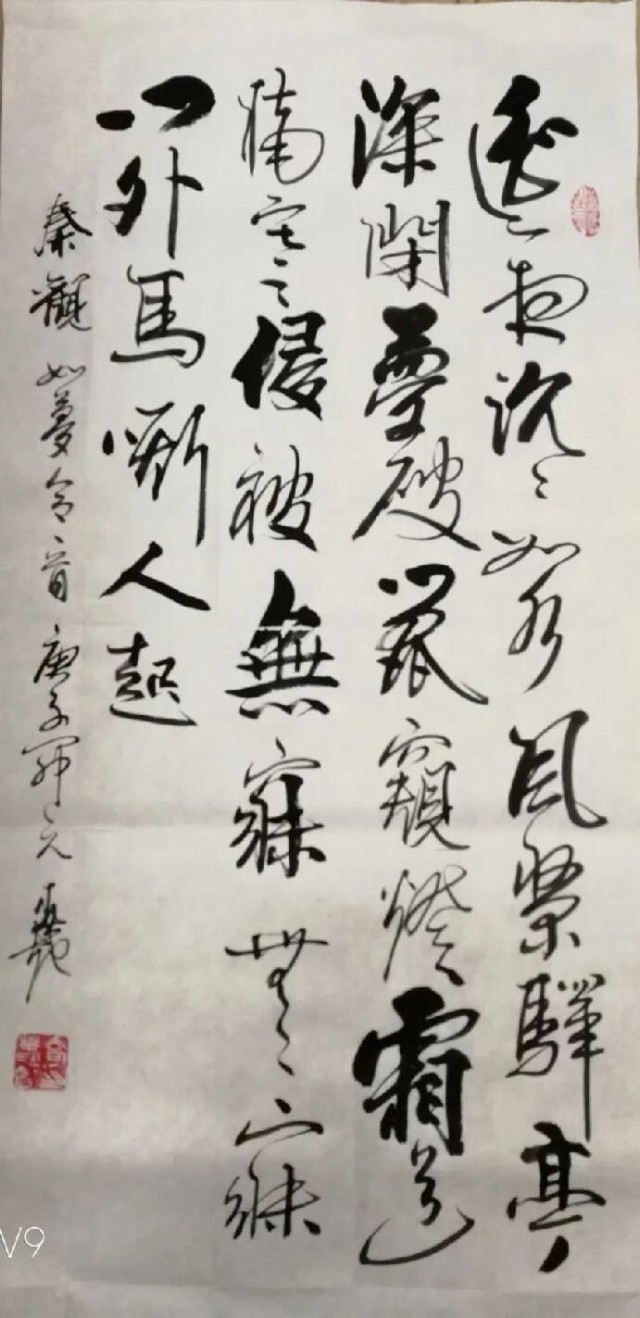 遥夜沉〻如水風緊驛亭
深閉夢破鼠窺燈霜送
曉寒侵被無寐無寐
門外馬嘶人起
秦觀如夢令一首庚子
V9